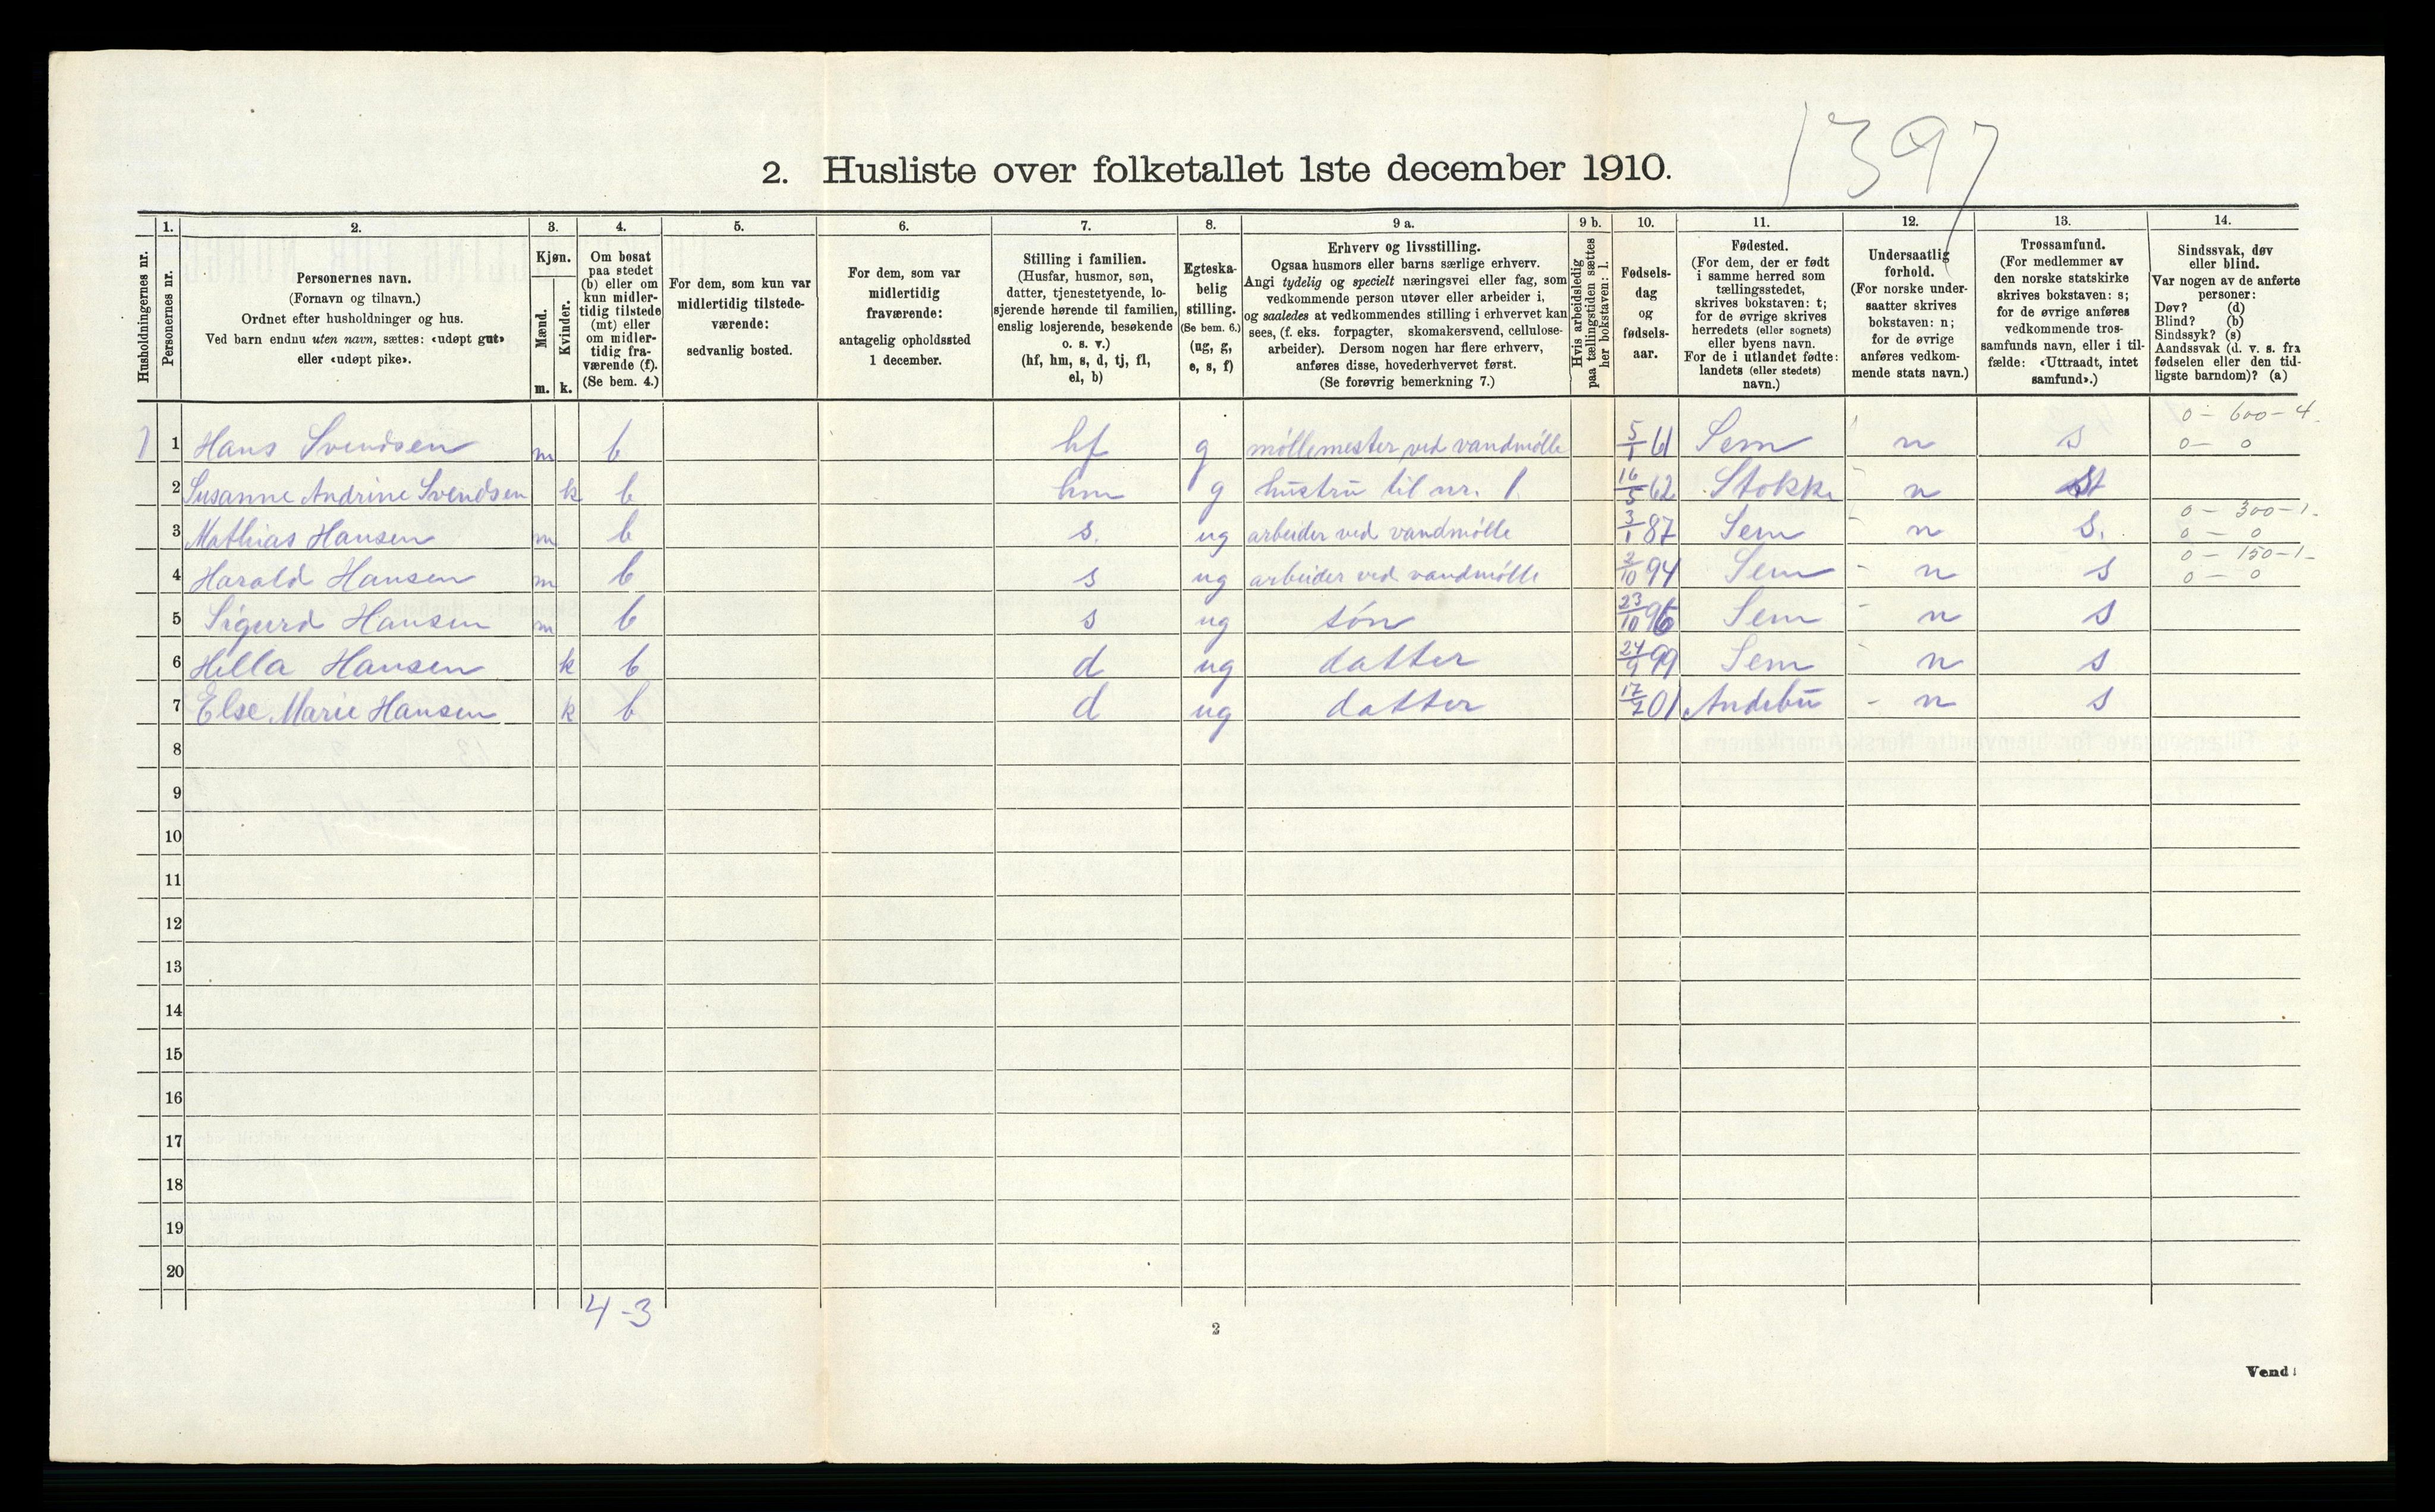 1397
2. Husliste over folketallet 1ste december 1910.
Husholdningernes nr.
1.
Personernes nr.
2.
Personernes navn.
(Fornavn og tilnavn.)
Ordnet efter husholdninger og hus.
Ved barn endnu uten navn, sættes: «udøpt gut»
eller «udøpt pike».
3.
Kjøn.
Mænd.
m.
Kvinder.
k.
4.
Om bosat
paa stedet
(b) eller om
kun midler-
tidig tilstede
(mt) eller
om midler-
tidig fra-
værende (f).
(Se bem. 4.)
5.
For dem, som kun var
midlertidig tilstede-
værende:
sedvanlig bosted.
6.
For dem, som var
midlertidig
fraværende:
antagelig opholdssted
1 december.
7.
Stilling i familien.
(Husfar, husmor, søn,
datter, tjenestetyende, lo-
sjerende hørende til familien,
enslig losjerende, besøkende
o. s. v.)
(hf, hm, s, d, tj, fl,
el, b)
8.
Egteska-
belig
stilling.
(Se bem. 6.)
(ug, g,
e, s, f)
9 a.
Erhverv og livsstilling.
Ogsaa husmors eller barns særlige erhverv.
Angi tydelig og specielt næringsvei eller fag, som
vedkommende person utøver eller arbeider i,
og saaledes at vedkommendes stilling i erhvervet kan
sees, (f. eks. forpagter, skomakersvend, cellulose-
arbeider). Dersom nogen har flere erhverv,
anføres disse, hovederhvervet først.
(Se forøvrig bemerkning 7.)
9 b.
Hvis arbeidsledig
paa tællingstiden sættes
her bokstaven: l.
10.
Fødsels-
dag
og
fødsels-
aar.
11.
Fødested.
(For dem, der er født
i samme herred som
tællingsstedet,
skrives bokstaven: t;
for de øvrige skrives
herredets (eller sognets)
eller byens navn.
For de i utlandet fødte:
landets (eller stedets)
navn.)
12.
Undersaatlig
forhold.
(For norske under-
saatter skrives
bokstaven: n;
for de øvrige
anføres vedkom-
mende stats navn.)
13.
Trossamfund.
(For medlemmer av
den norske statskirke
skrives bokstaven: s;
for de øvrige anføres
vedkommende tros-
samfunds navn, eller i til-
fælde: «Uttraadt, intet
samfund».)
14.
Sindssvak, døv
eller blind.
Var nogen av de anførte
personer:
Døv? (d)
Blind? (b)
Sindssyk? (s)
Aandssvak (d. v. s. fra
fødselen eller den tid-
ligste barndom)? (a)
1 1 Hans Svendsen m b hf g møllemester ved vandmølle 5/1 61 Sem n s 0 - 600 - 4. 0 - 0
2 Susanne Andrine Svendsen k b hm g hustru til nr. 1 16/5 62 Stokke n
3 Mathias Hansen m b s. ug arbeider ved vandmølle 3/1 87 Sem n s. 0 - 300 - 1. 0 - 0
4 Harald Hansen m b s ug arbeider ved vandmølle 2/10 94 Sem n s 0 - 150 - 1 - 0 - 0
5 Sigurd Hansen m b s ug søn 23/10 96 Sem n s
6 Hilla Hansen k b d ug datter 24/9 99 Sem n s
7 Else Marie Hansen k b d ug datter 17/7 01 Andebu - n s
8
9
10
11
12
13
14
15
16
17
18
19
20
4 - 3
2
Vend!